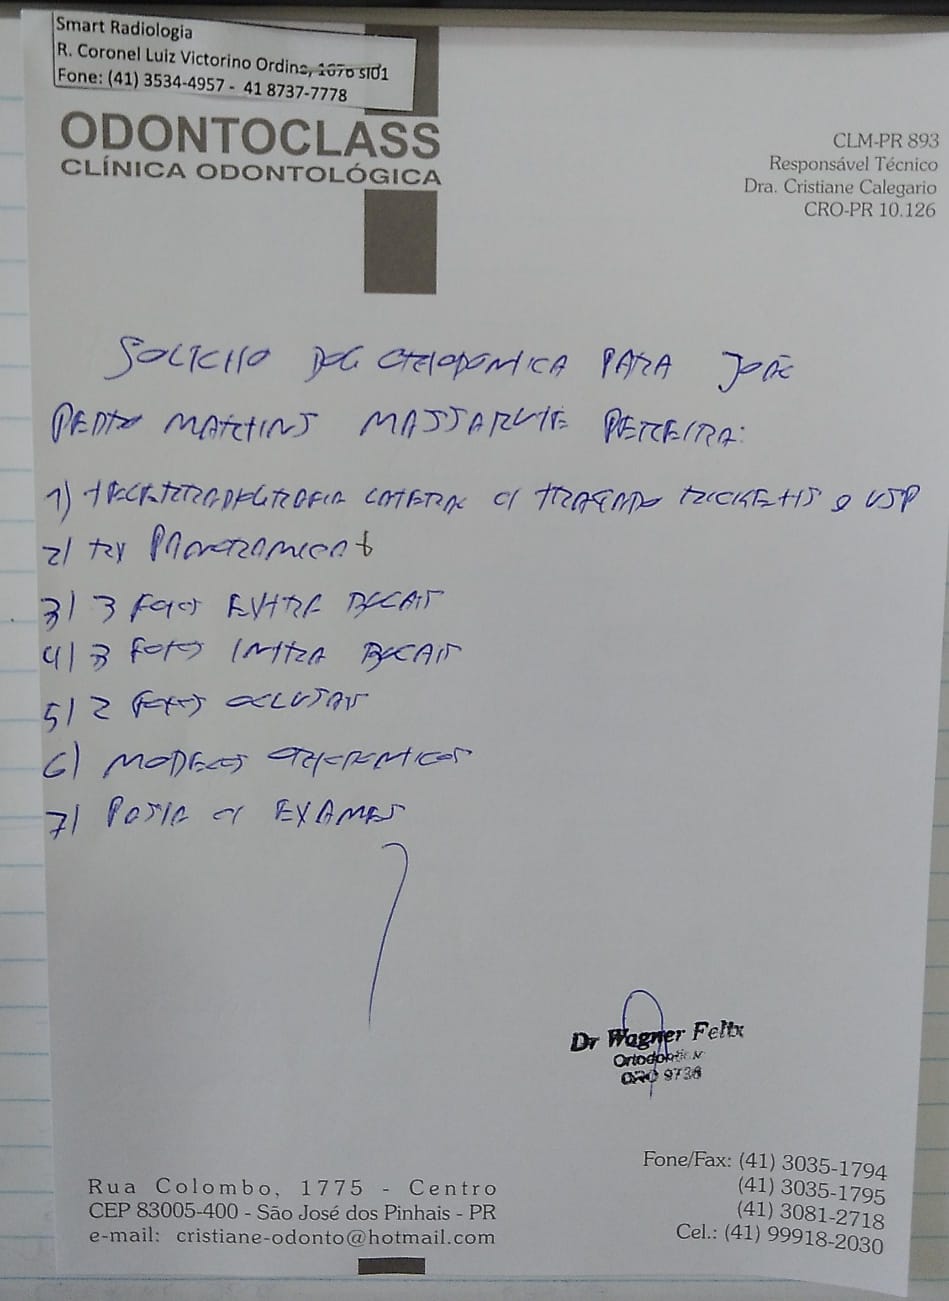 Smart Radiologia
R. Coronel Luiz Victorino Ordine, 1676 sl01
Fone: (41) 3534-4957 - 41 8737-7778
ODONTOCLASS
CLÍNICA ODONTOLÓGICA
CLM-PR 893
Responsável Técnico
Dra. Cristiane Calegario
CRO-PR 10.126
SOLICITO DOC ORTODONTICA PARA JOÃO
PEDRO MARTINS PEREIRA:
1) TELERRADIOGRAFIA LATERAL C/ TRAÇADO RICKETTS e USP
2) RX PANORAMICA
3) 3 FOTOS EXTRA BUCAIS
4) 3 FOTOS INTRA BUCAIS
5) 2 FOTOS OCLUSAIS
6) MODELOS ORTODONTICOS
7) PASTA C/ EXAMES
Dr Wagner Felix
Ortodontista
CRO 9736
Rua Colombo, 1775 - Centro
CEP 83005-400 - São José dos Pinhais - PR
e-mail: cristiane-odonto@hotmail.com
Fone/Fax: (41) 3035-1794
(41) 3035-1795
(41) 3081-2718
Cel.: (41) 99918-2030